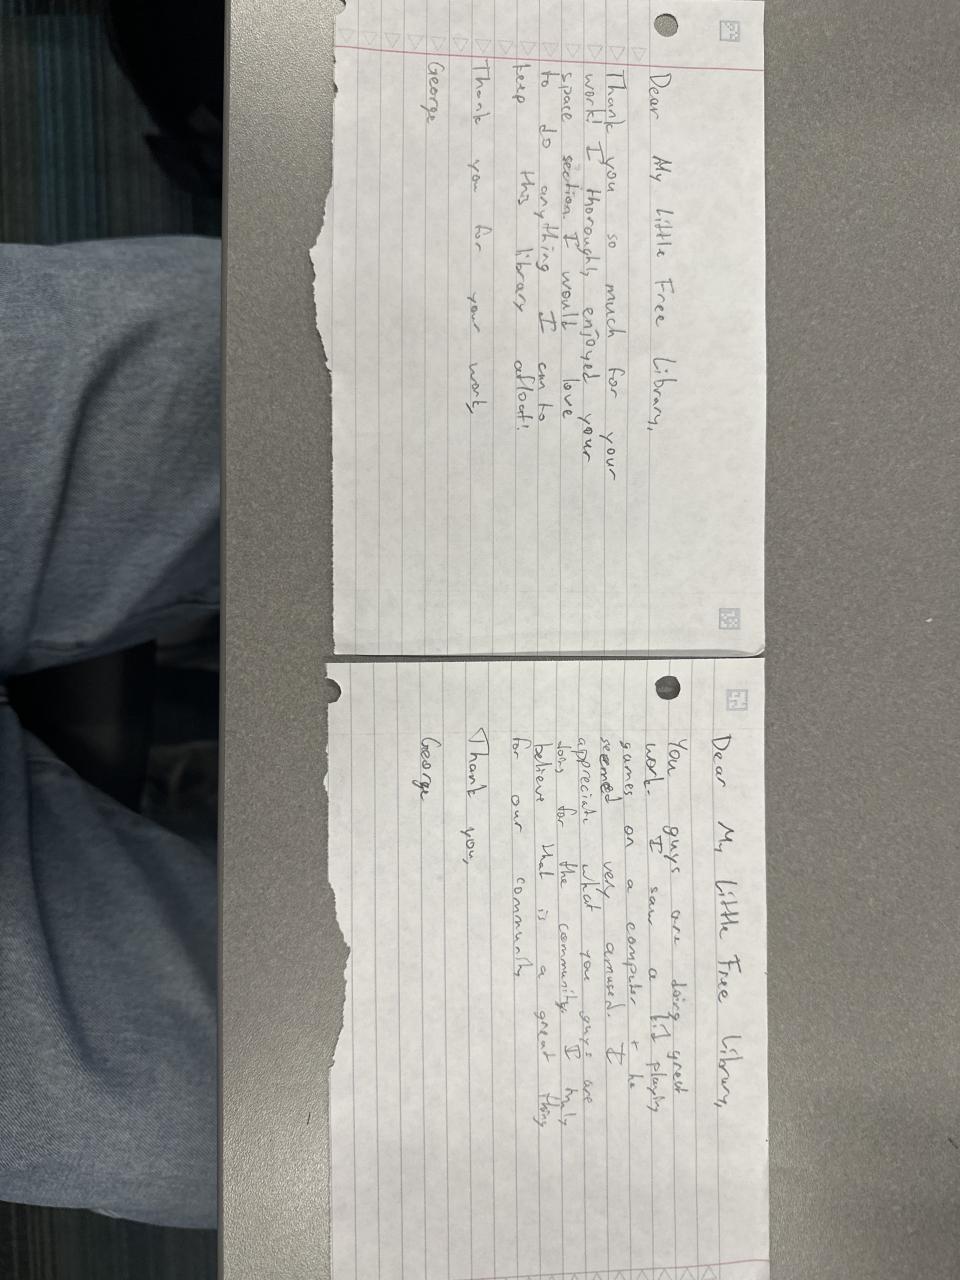 Dear My Little Free Library,
Thank you so much for your
work! I thoroughly enjoyed your
space section. I would love
to do anything I can to
keep this library afloat!
Thank you for your work,
George
Dear My Little Free Library,
You guys are doing great
work. I saw a kid playing
games on a computer + he
seemed very amused. I
appreciate what you guys are
doing for the community. I truly
believe that is a great thing
for our community
Thank you,
George